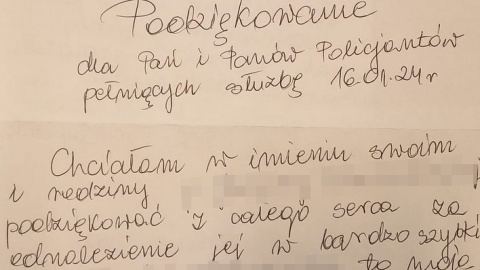 Podziękowanie
dla Pań i Panów Policjantów
pełniących służbę 16.01.24r
Chciałam w imieniu swoim
i rodziny
podziękować z całego serca za
odnalezienie jej w bardzo szybki
to moje